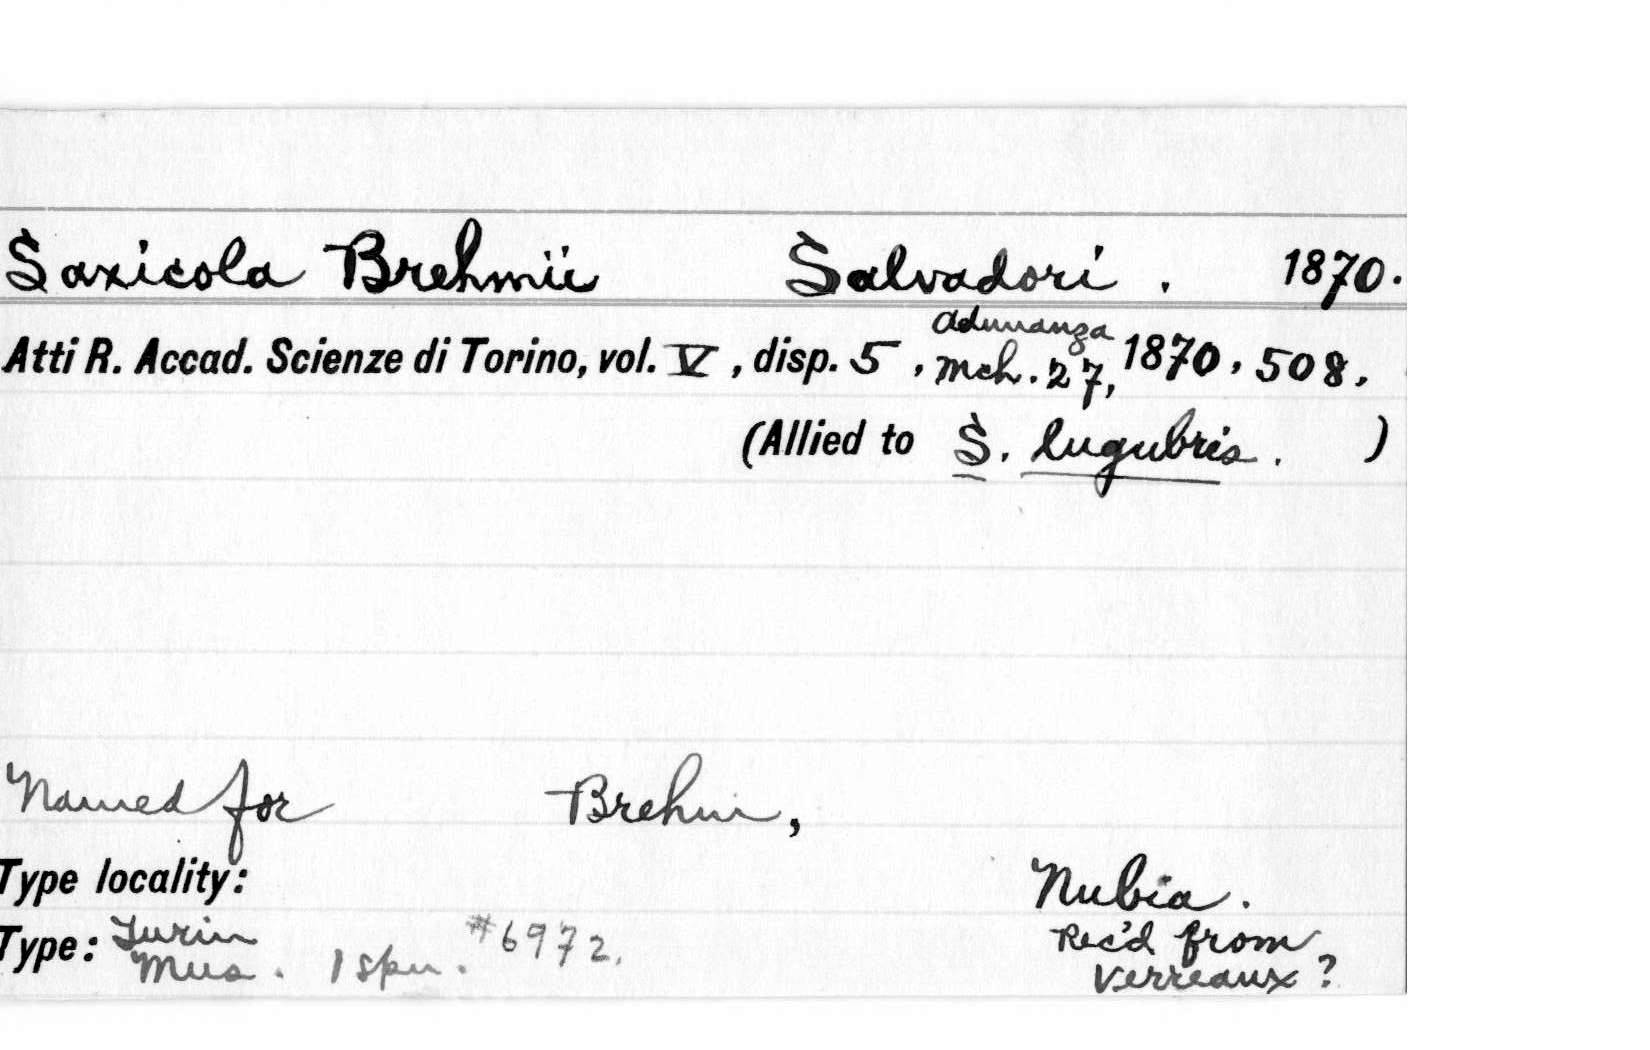 Saxicola Brehmii Salvadori. 1870.
Adunanza
Atti R. Accad. Scienze di Torino, vol. V, disp. 5, Mch. 27, 1870, 508.
(Allied to S. lugubris. )
Named for Brehm,
Type locality: Nubia.
Type: Turin Mus. 1 spm. #6972. Rec'd from
Verreaux?